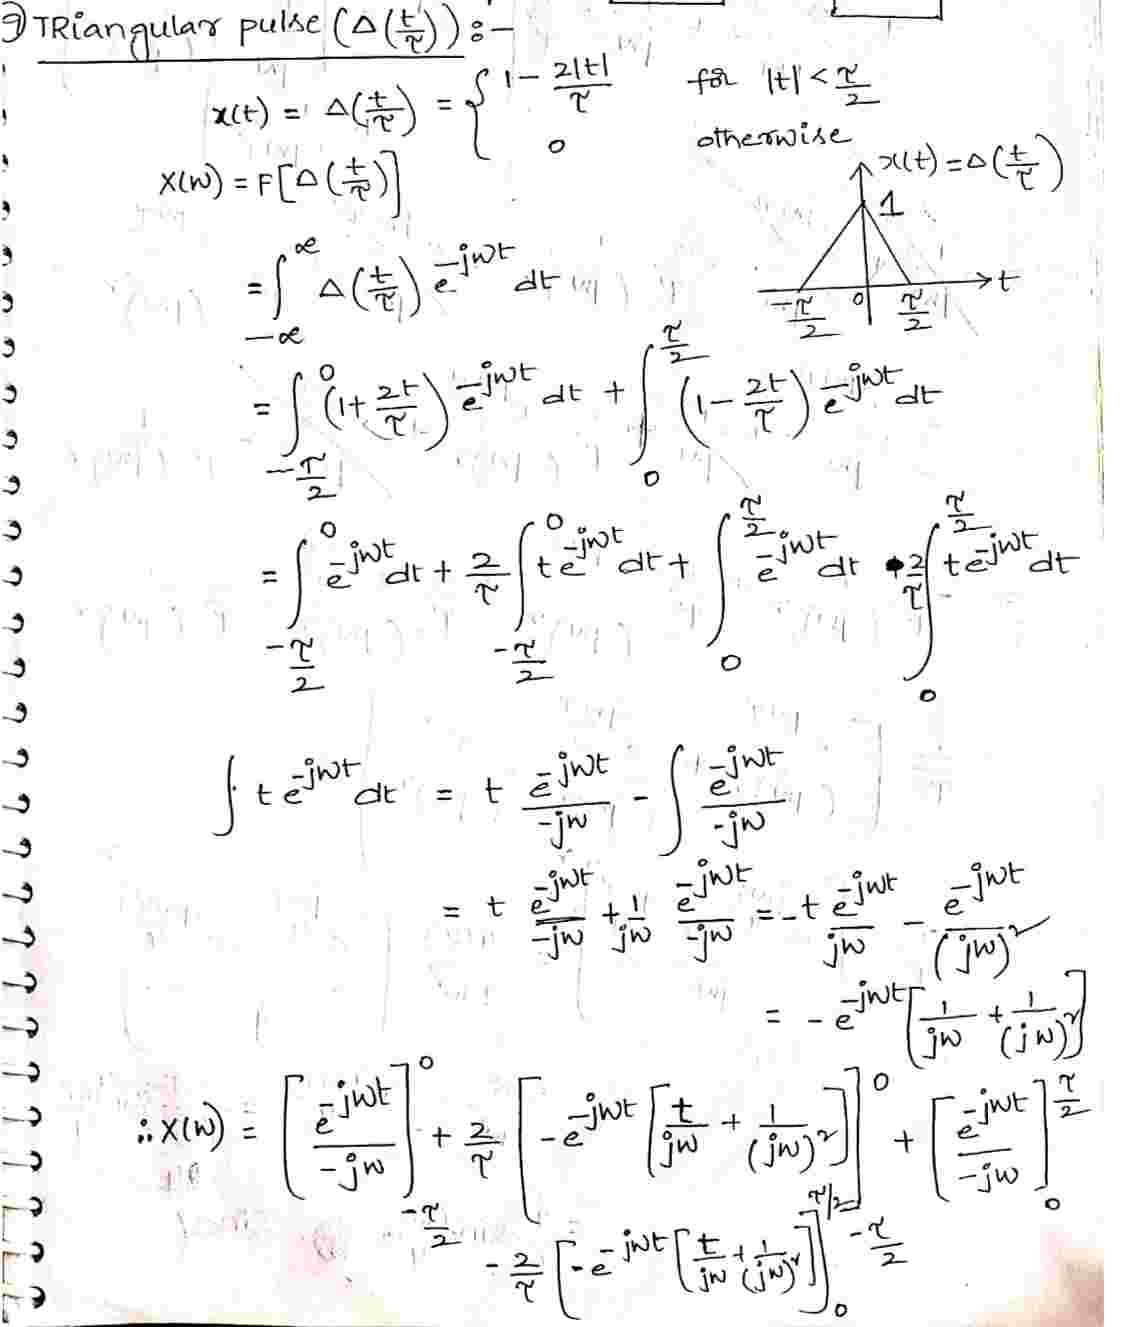 9) TRiangular pulse (Δ(t/τ)) :-
x(t) = Δ(t/τ) = { 1 - 2|t|/τ for |t| < τ/2
0 otherwise
X(w) = F[Δ(t/τ)]
x(t) = Δ(t/τ)
1
-τ/2 0 τ/2 t
= ∫_{-∞}^{∞} Δ(t/τ) e^{-jwt} dt
= ∫_{-τ/2}^{0} (1 + 2t/τ) e^{-jwt} dt + ∫_{0}^{τ/2} (1 - 2t/τ) e^{-jwt} dt
= ∫_{-τ/2}^{0} e^{-jwt} dt + 2/τ ∫_{-τ/2}^{0} t e^{-jwt} dt + ∫_{0}^{τ/2} e^{-jwt} dt - 2/τ ∫_{0}^{τ/2} t e^{-jwt} dt
∫ t e^{-jwt} dt = t e^{-jwt}/-jw - ∫ e^{-jwt}/-jw
= t e^{-jwt}/-jw + 1/jw e^{-jwt}/-jw = -t e^{-jwt}/jw - e^{-jwt}/(jw)^2
= -e^{-jwt} [1/jw + 1/(jw)^2]
∴ X(w) = [e^{-jwt}/-jw]_{-τ/2}^{0} + 2/τ [-e^{-jwt} [t/jw + 1/(jw)^2]]_{-τ/2}^{0} + [e^{-jwt}/-jw]_{0}^{τ/2}
- 2/τ [-e^{-jwt} [t/jw + 1/(jw)^2]]_{0}^{τ/2}